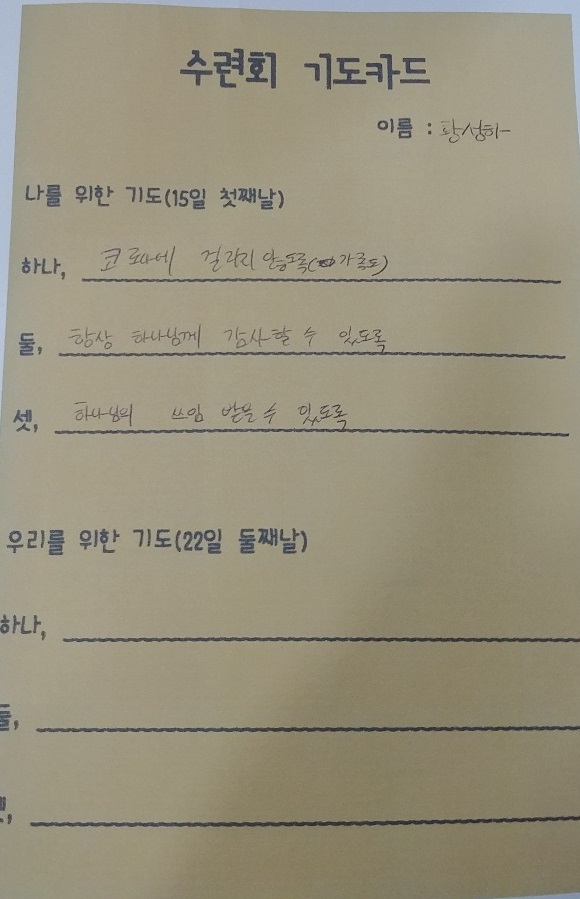 수련회 기도카드
이름 : 황성하
나를 위한 기도(15일 첫째날)
하나, 코로나에 걸리지 않도록( 가족도)
둘, 항상 하나님께 감사할 수 있도록
셋, 하나님의 쓰임 받을 수 있도록
우리를 위한 기도(22일 둘째날)
하나,
둘,
셋,